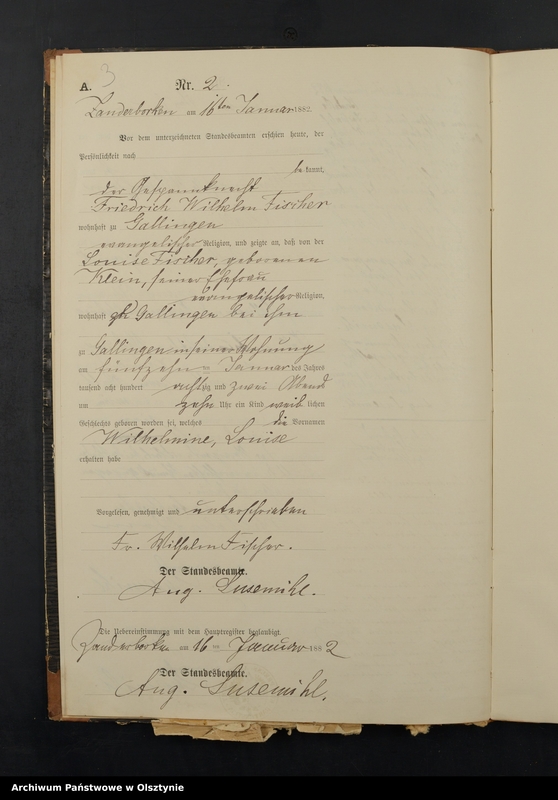 A. 3 Nr. 2.
Zanderborken am 16ten Januar 1882.
Vor dem unterzeichneten Standesbeamten erschien heute, der
Persönlichkeit nach
be kannt,
der Gespannknecht
Friedrich Wilhelm Fischer
wohnhaft zu Gallingen
evangelischer Religion, und zeigte an, daß von der
Louise Fischer, geborenen
Klein, seiner Ehefrau
evangelischer Religion,
wohnhaft zu Gallingen bei ihm
zu Gallingen in seiner Wohnung
am fünfzehn Januar des Jahres
tausend acht hundert achtzig und zwei Abend
um zehn Uhr ein Kind weib lichen
Geschlechts geboren worden sei, welches die Vornamen
Wilhelmine, Louise
erhalten habe
Vorgelesen, genehmigt und unterschrieben
Fr. Wilhelm Fischer.
Der Standesbeamte.
Aug. Susemihl.
Die Uebereinstimmung mit dem Hauptregister beglaubigt.
Zanderborken am 16 ten Januar 1882
Der Standesbeamte.
Aug. Susemihl.
Archiwum Państwowe w Olsztynie